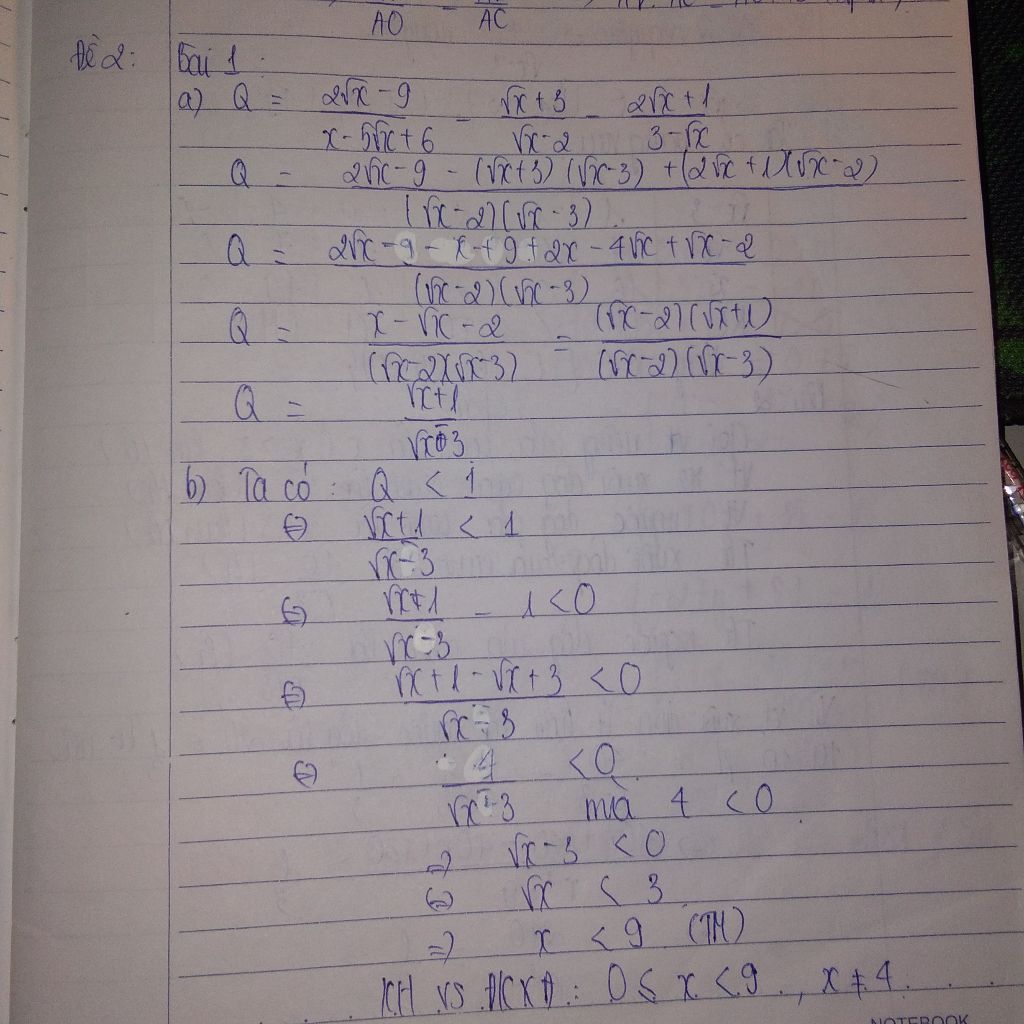 AO AC
Đề 2: Bài 1:
a) Q = (2√x - 9)/(x - 5√x + 6) - (√x + 3)/(√x - 2) - (2√x + 1)/(3 - √x)
Q = (2√x - 9 - (√x + 3)(√x - 3) + (2√x + 1)(√x - 2))/((√x - 2)(√x - 3))
Q = (2√x - 9 - x + 9 + 2x - 4√x + √x - 2)/((√x - 2)(√x - 3))
Q = (x - √x - 2)/((√x - 2)(√x - 3)) = ((√x - 2)(√x + 1))/((√x - 2)(√x - 3))
Q = (√x + 1)/(√x - 3)
b) Ta có: Q < 1
⇔ (√x + 1)/(√x - 3) < 1
⇔ (√x + 1)/(√x - 3) - 1 < 0
⇔ (√x + 1 - √x + 3)/(√x - 3) < 0
⇔ 4/(√x - 3) < 0 mà 4 < 0
⇒ √x - 3 < 0
⇔ √x < 3
⇒ x < 9 (TM)
KH vs ĐKXĐ: 0 ≤ x < 9, x ≠ 4.
NOTEBOOK